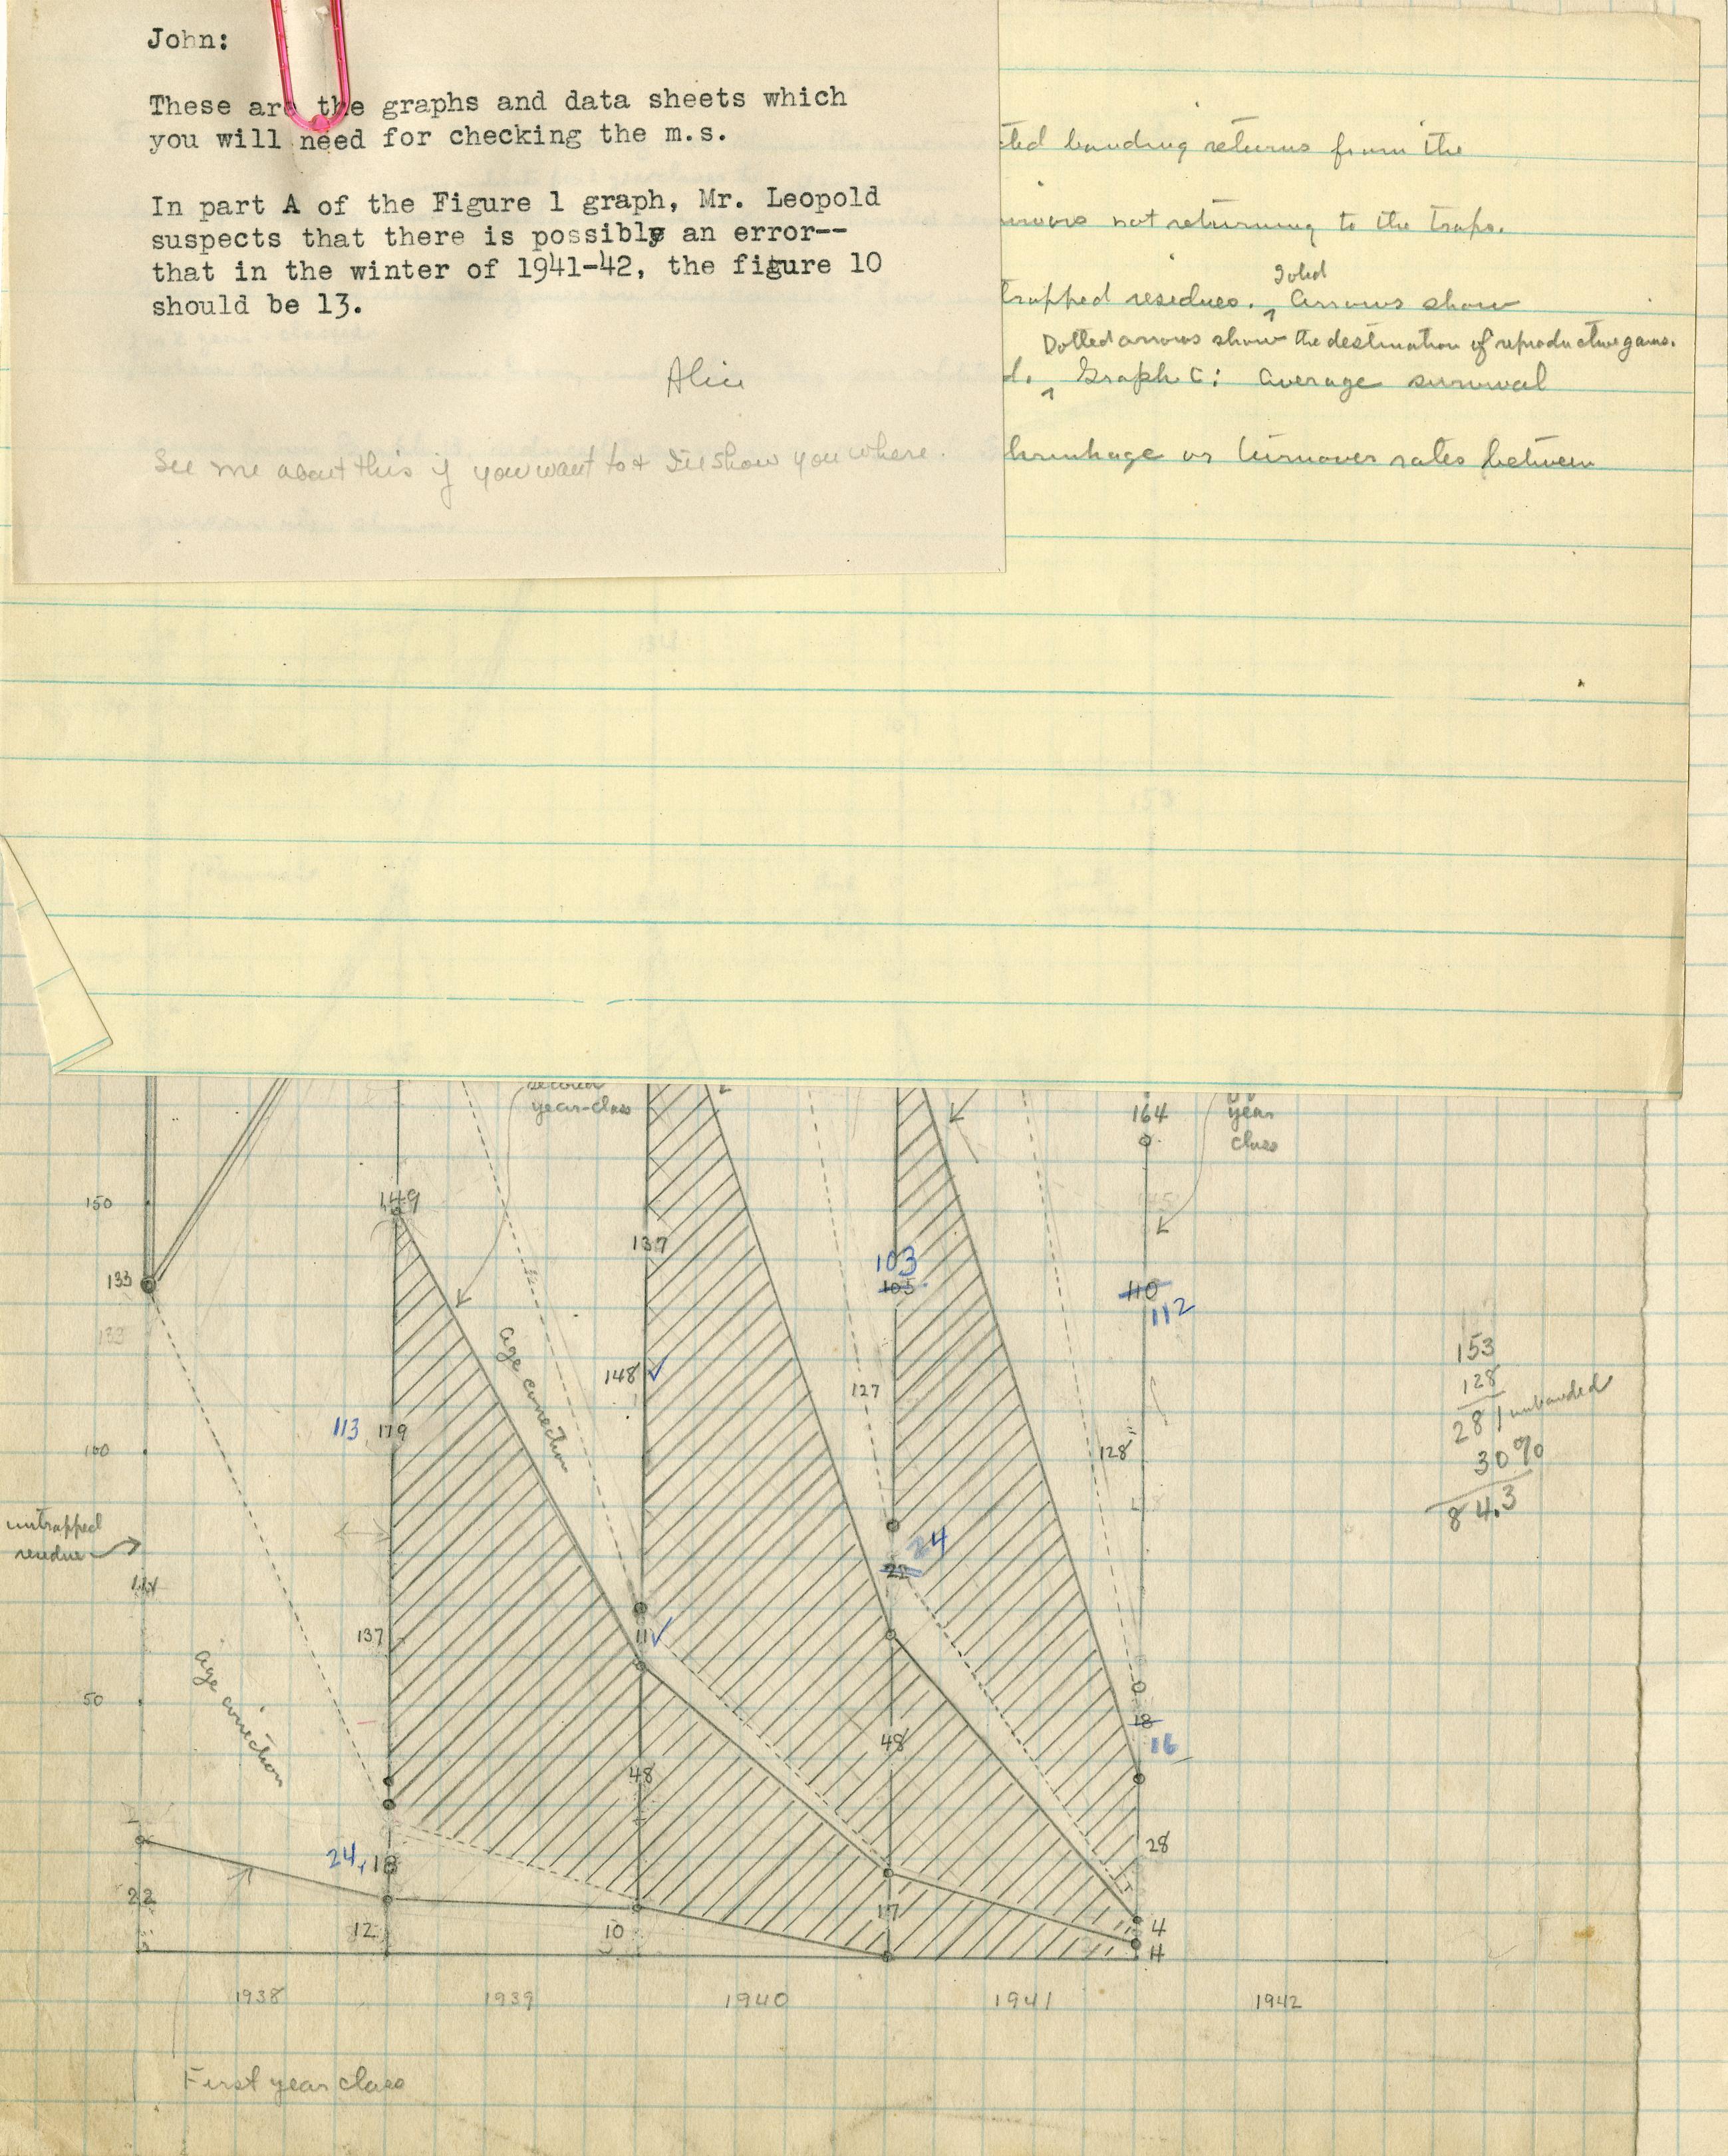 John:
These are the graphs and data sheets which
you will need for checking the m.s.
In part A of the Figure 1 graph, Mr. Leopold
suspects that there is possibly an error--
that in the winter of 1941-42, the figure 10
should be 13.
Alice
See me about this if you want to & I'll show you where.
banding returns from the
not returning to the traps.
Solid
trapped residues. ^ Arrows show
Dotted arrows show the destination of reproductive gains.
d. ^ Graph C: Average survival
shrinkage or turnover rates between
second
year-class
year
class
164
150
149
137
133
133
103
105
110
112
148 ✓
127
113 179
100
128
153
128
281 unbanded
30%
84.3
age correction
untrapped
residue
24
22
11 ✓
137
50
age correction
18
16
48
48
28
24, 18
22
12
10
17
4
4
1938
1939
1940
1941
1942
First year class